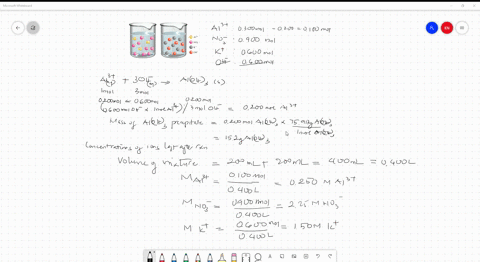 Al³⁺ 0.300mol - 0.200 = 0.100 mol
NO₃⁻ : 0.900 mol
K⁺ : 0.600mol
OH⁻ : 0.600mol
Al³⁺ + 3OH⁻ → Al(OH)₃ (s)
1mol 3mol
0.200mol 0.600mol 0.200mol
(0.600mol OH⁻ x 1mol Al³⁺) / 3mol OH⁻ = 0.200mol Al³⁺
Mass of Al(OH)₃ precipitate = 0.200mol Al(OH)₃ x
= 15.2g Al(OH)₃
Concentrations of ions left after rxn
Volume of mixture = 200mL + 200mL = 400mL = 0.400L
M Al³⁺ = 0.100mol / 0.400L = 0.250 M Al³⁺
M NO₃⁻ = 0.900mol / 0.400L = 2.25 M NO₃⁻
M K⁺ = 0.600mol / 0.400L = 1.50 M K⁺